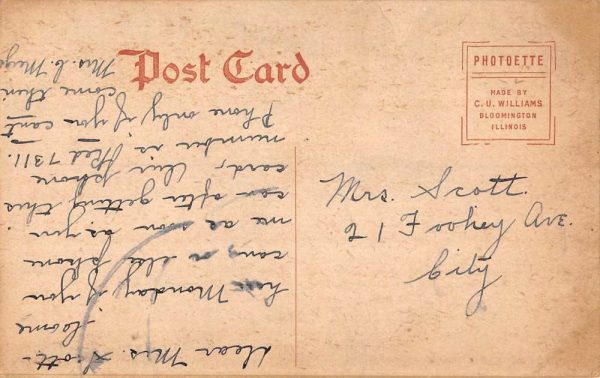 Post Card
PHOTOETTE
MADE BY
C. U. WILLIAMS
BLOOMINGTON
ILLINOIS
Mrs. Scott.
21 Foohey Ave.
City
Dear Mrs. Scott-
Come
here Monday if you
can, or else phone
me as soon as you
can after getting this
card, Our phone
number is 7311.
Phone only if you can't
come then
Mrs. C.